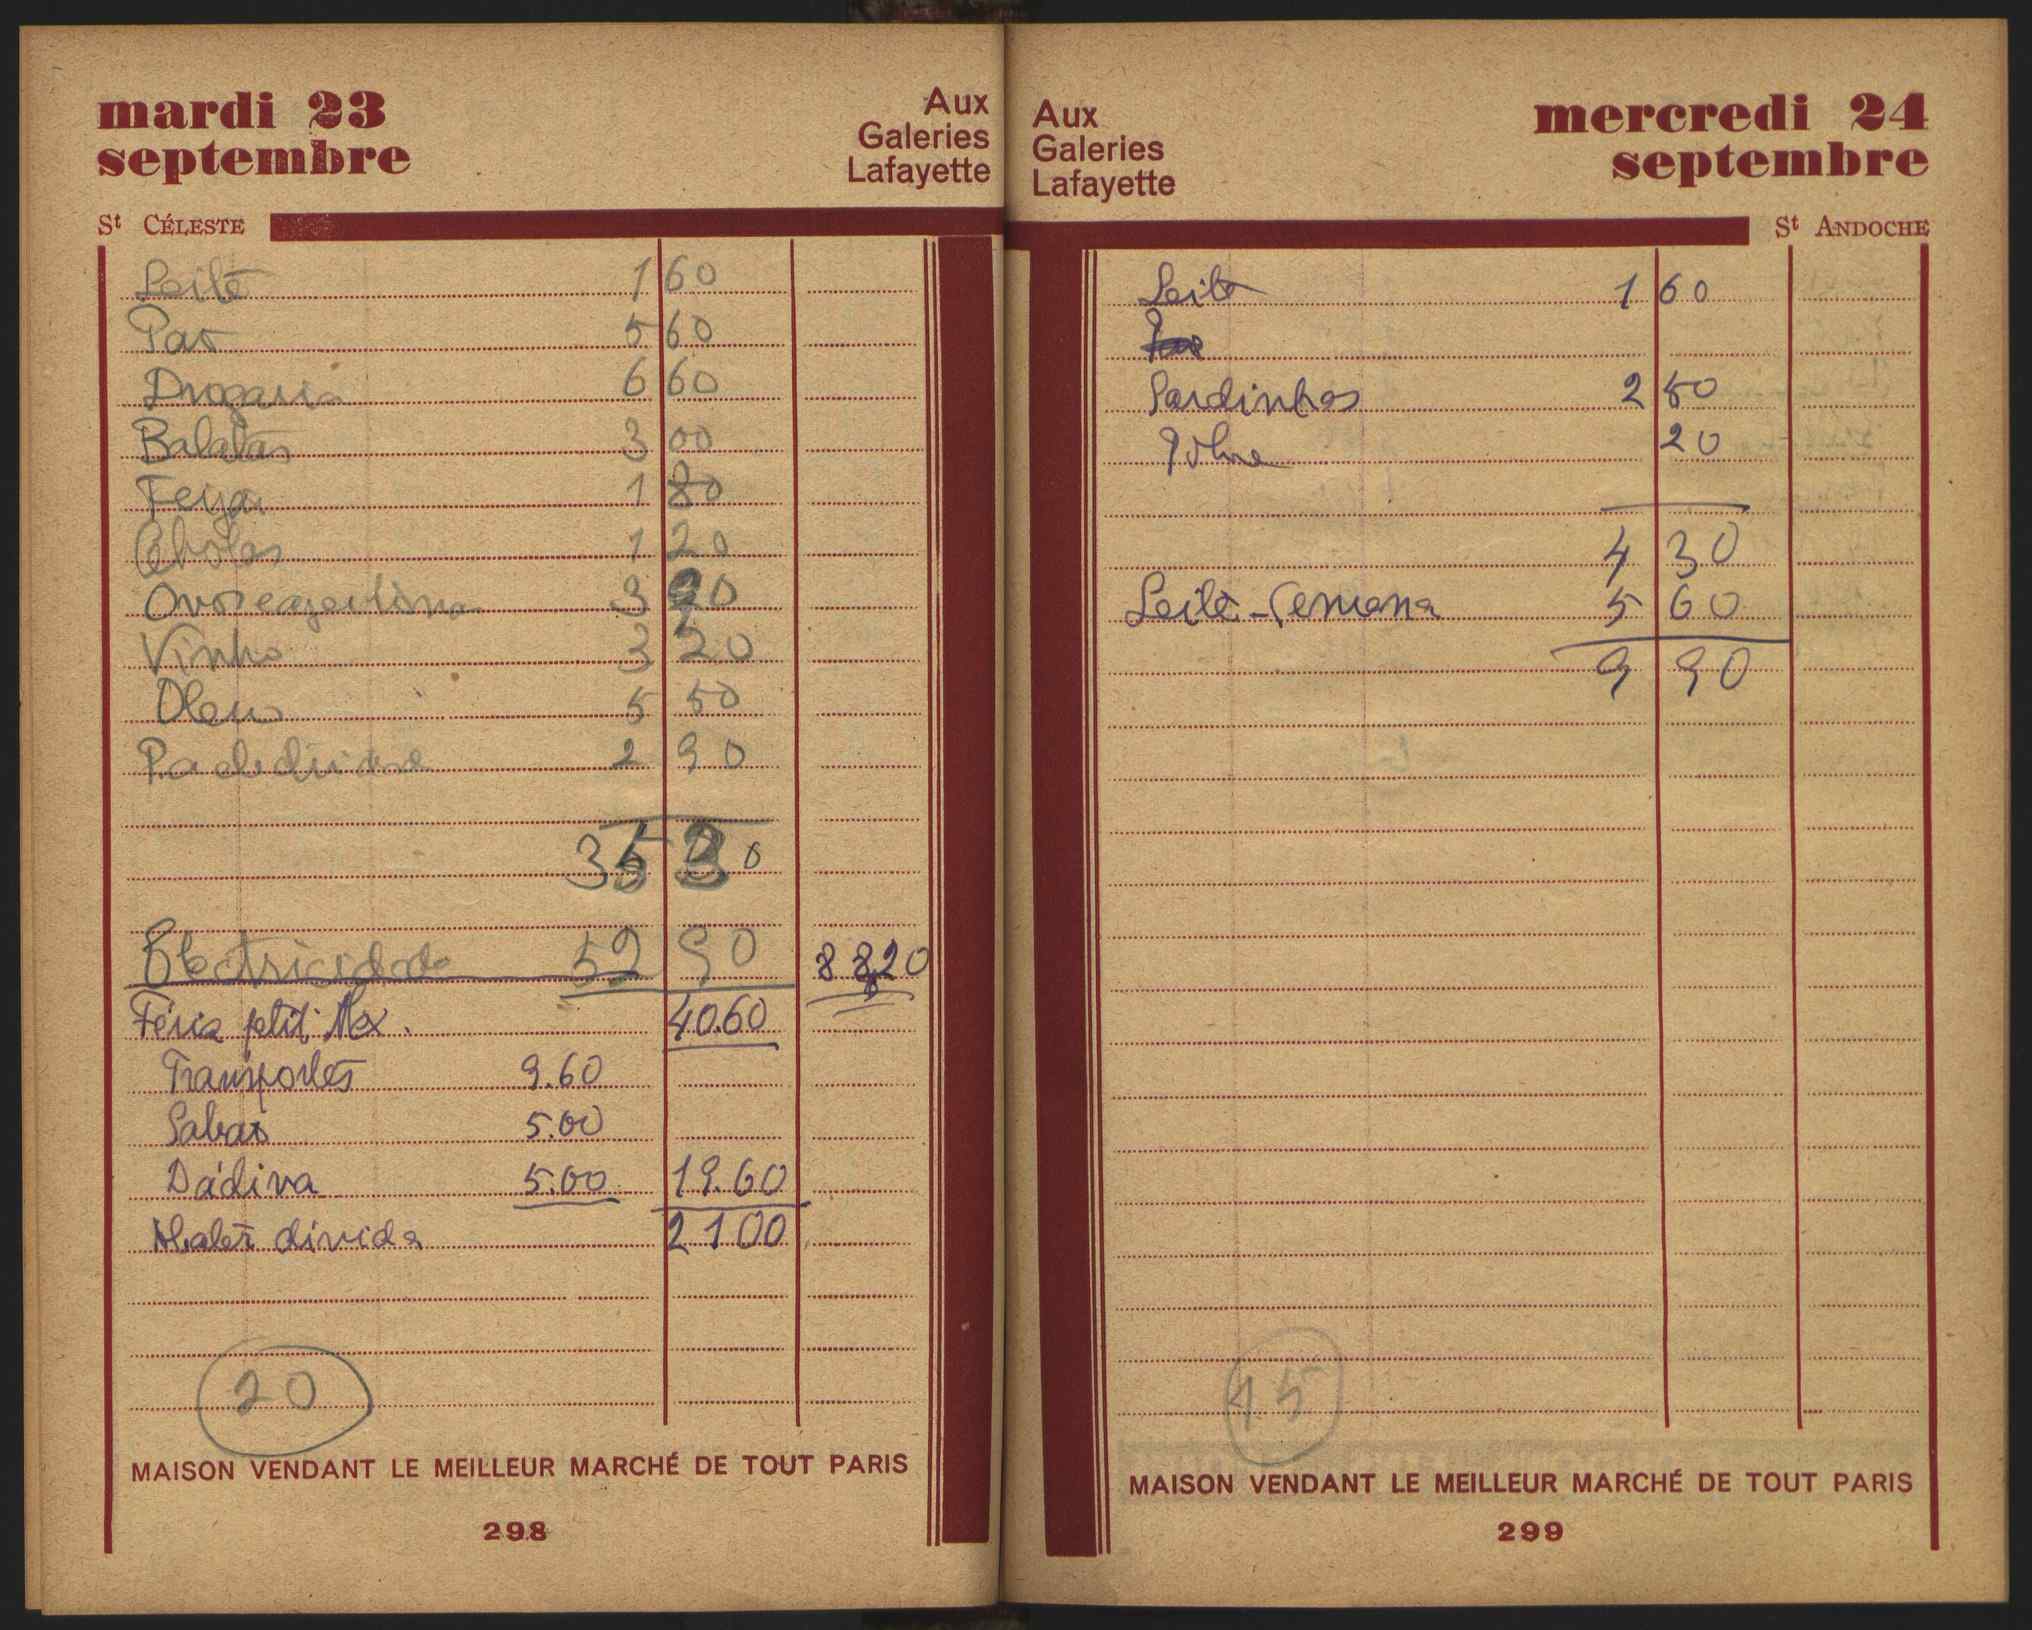 mardi 23
septembre
Aux
Galeries
Lafayette
St CÉLESTE
Leite 1 60
Pao 5 60
Drogaria 6 60
Batatas 3 00
Feijão 1 80
Cebolas 1 20
3 90
Vinho 3 20
Oleo 5 50
2 90
35 30
Electricidade 52 90 88 20
Féria petit Max. 40.60
Transportes 9.60
Sabao 5.00
Dádiva 5.00 19.60
Abater divida 21 00
20
MAISON VENDANT LE MEILLEUR MARCHÉ DE TOUT PARIS
298
Aux
Galeries
Lafayette
mercredi 24
septembre
St ANDOCHE
Leite 1 60
Sardinhas 2 50
20
4 30
Leite - Semana 5 60
9 90
15
MAISON VENDANT LE MEILLEUR MARCHÉ DE TOUT PARIS
299